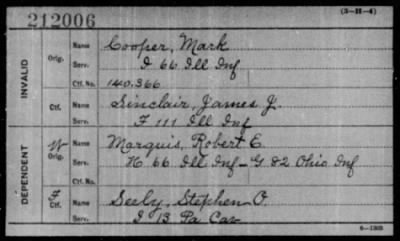 212006
(3-H-4)
INVALID
Orig.
Name Cooper, Mark
Serv. I 66 Ill Inf
Ctf. No. 140,366
Ctf.
Name Sinclair, James J.
Serv. F 111 Ill Inf
DEPENDENT
W
Orig.
Name Marquis, Robert E.
Serv. K 66 Ill Inf - G 82 Ohio Inf
Ctf. No.
Ctf.
Name Seely, Stephen O.
Serv. I 13 Pa Cav
6-1303